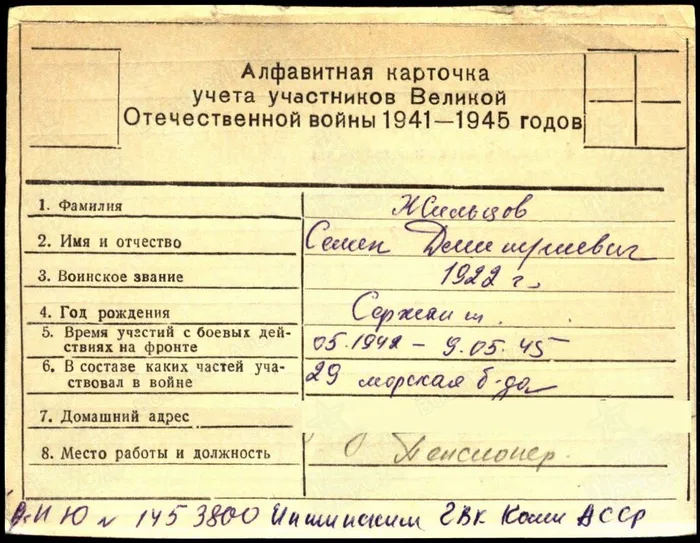 Алфавитная карточка
учета участников Великой
Отечественной войны 1941—1945 годов
1. Фамилия Жильцов
2. Имя и отчество Семен Дмитриевич
3. Воинское звание 1922 г.
4. Год рождения Сержант.
5. Время участий с боевых дей-
ствиях на фронте 05.1942 – 9.05.45
6. В составе каких частей уча-
ствовал в войне 29 морская б-да
7. Домашний адрес
8. Место работы и должность Пенсионер.
№ 145 3800 Интинским ГВК Коми АССР